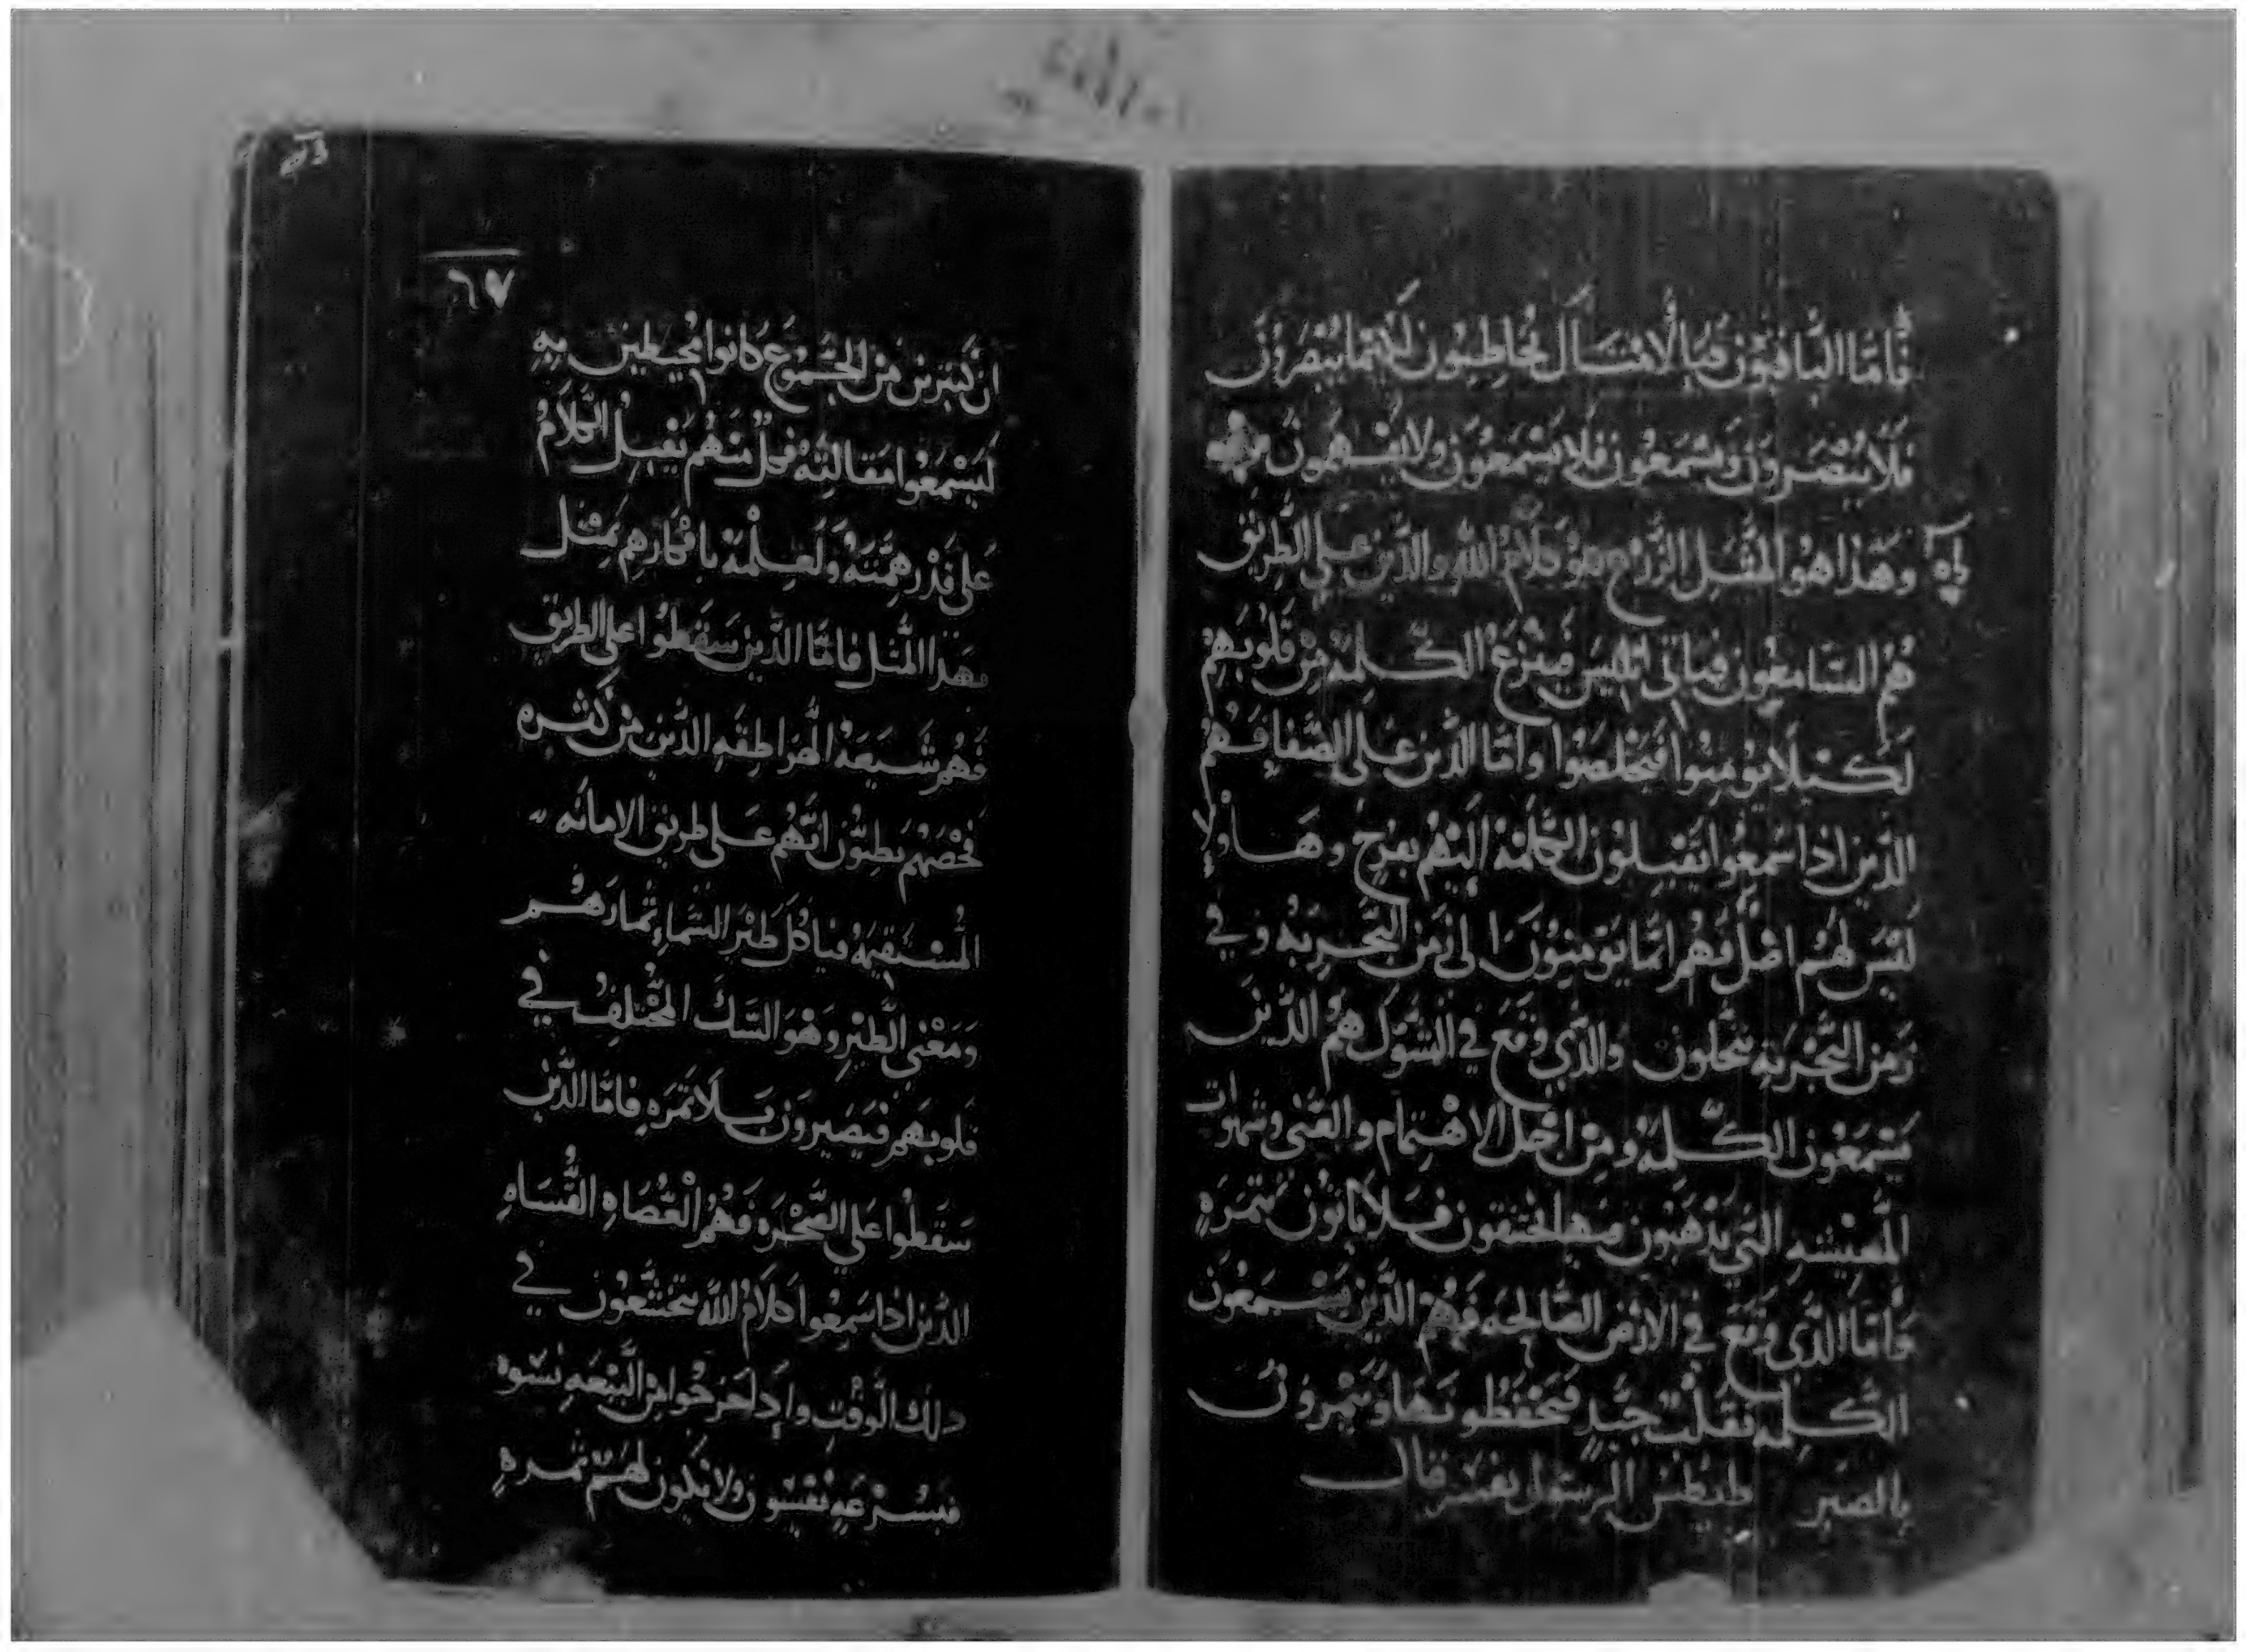 فامّا الباقيون فبالامثال يخاطبون لانهّما يبصرون
فلا يبصرون ويسمعون فلا يسمعون ولا يفهمون
وهذا هو المثل الزرع هو كلام الله والذين على الطريق
هم السامعون فياتي ابليس فينزع الكلمه من قلوبهم
لكيلا يومنوا فيخلصوا وامّا الذين على الصفا فهم
الذين اذا سمعوا يقبلون الكلمه اليهم بفرح وهاولا
ليس لهم اصل فهم انما يومنون الى زمن التجربه وفي
زمن التجربه يتخلون والذي وقع في الشوك هم الذين
يسمعون الكلمه ومن اجل الاهتمام والغنى وشهوات
المعيشه التي يذهبون فيها يختنقون فلا ياتون بثمره
وامّا الذي وقع في الارض الصالحه فهم الذين يسمعون
الكلمه بقلب جيد فيحفظونها ويثمرون
بالصبر طيطس الرسول يفسر قال
٦٧
ان كثيرين من الجموع كانوا محيطين به
ليسمعوا مقالته فكل منهم يقبل الكلام
على قدر همته ولعلمه بافكارهم يمثل
بهذا المثل فامّا الذين سقطوا على الطريق
فهم شيعة الهراطقه الذين من كثره
فحصهم يظنون انهم على طريق الامانه
المستقيمه فياكل طير السماء ثمارهم
ومعنى الطير وهو الشك المختلف في
قلوبهم فيصيرون بلا ثمره فامّا الذين
سقطوا على الصخره فهم العصاه القساه
الذين اذا سمعوا كلام الله يتخشعون في
ذلك الوقت واذا خرجوا من البيعه
بسرعه ولا يكون لهم ثمره